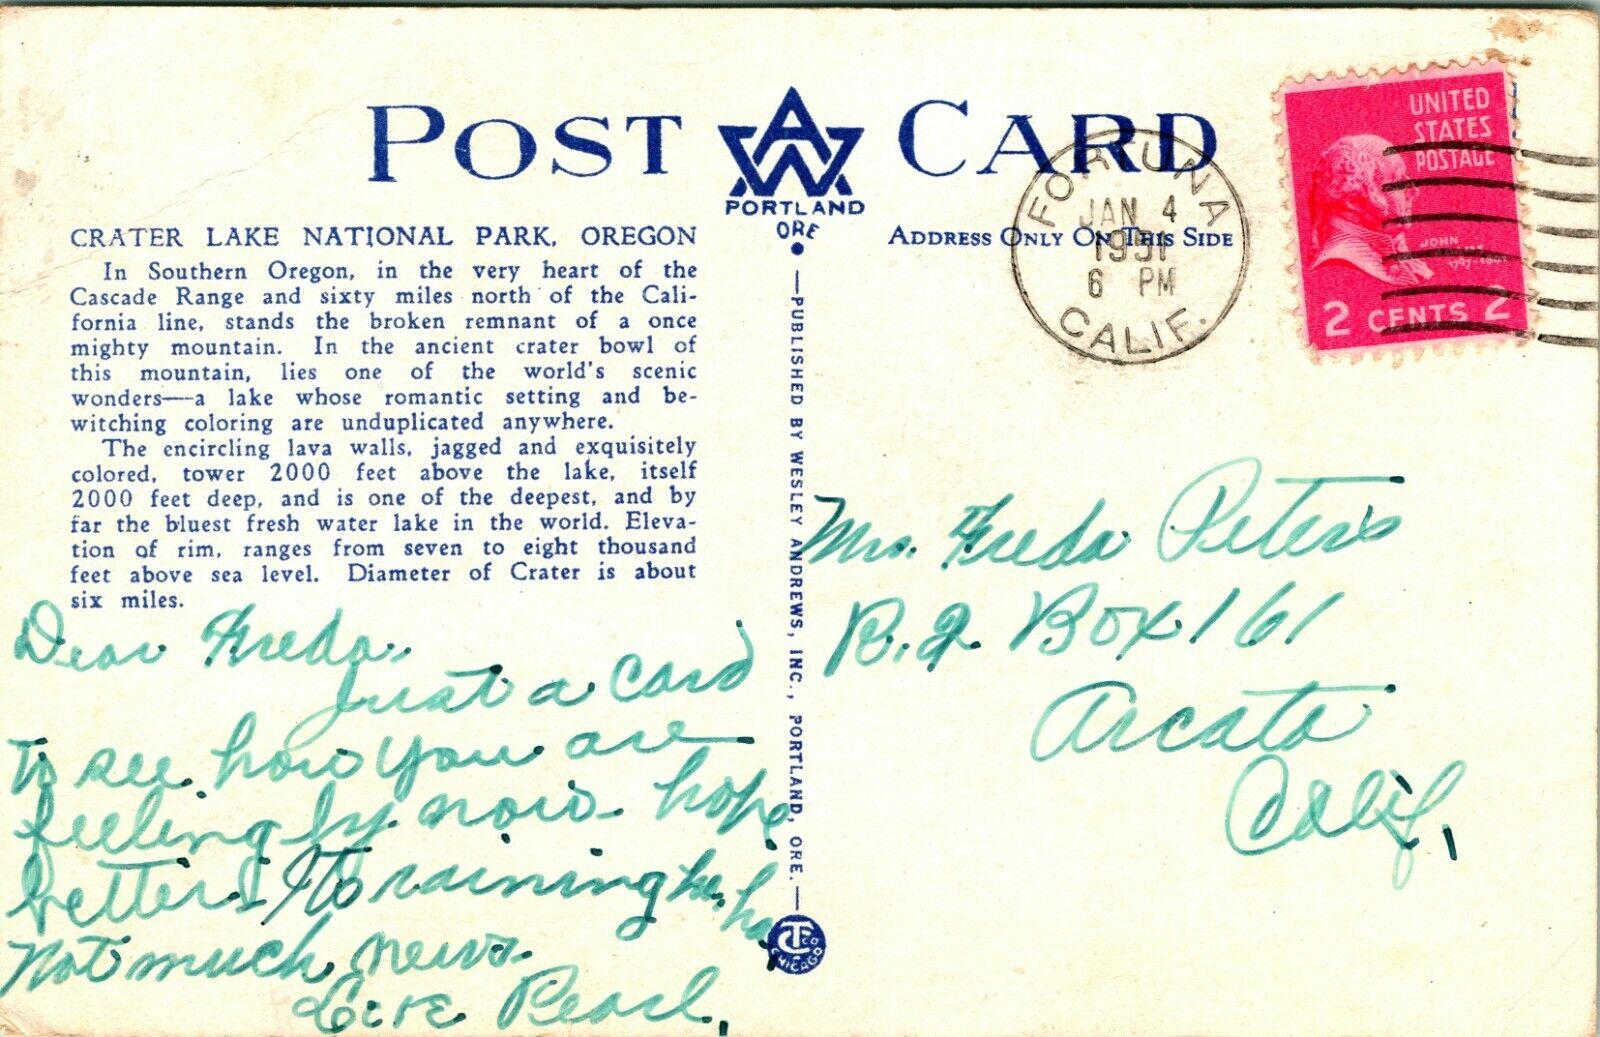 POST CARD
AW
PORTLAND
ORE
CRATER LAKE NATIONAL PARK, OREGON
In Southern Oregon, in the very heart of the
Cascade Range and sixty miles north of the Cali-
fornia line, stands the broken remnant of a once
mighty mountain. In the ancient crater bowl of
this mountain, lies one of the world's scenic
wonders—a lake whose romantic setting and be-
witching coloring are unduplicated anywhere.
The encircling lava walls, jagged and exquisitely
colored, tower 2000 feet above the lake, itself
2000 feet deep, and is one of the deepest, and by
far the bluest fresh water lake in the world. Eleva-
tion of rim, ranges from seven to eight thousand
feet above sea level. Diameter of Crater is about
six miles.
Dear Freda.
Just a card
to see how you are
feeling by now. hope
better. Its raining here, ha,
Not much news.
Love Pearl.
—PUBLISHED BY WESLEY ANDREWS, INC., PORTLAND, ORE.—
CT CO
CHICAGO
ADDRESS ONLY ON THIS SIDE
FORTUNA
JAN 4
1951
6 PM
CALIF.
UNITED
STATES
POSTAGE
JOHN
ADAMS
2 CENTS 2
Mrs. Freda Peters
R. 2 Box 161
Arcata
Calif.